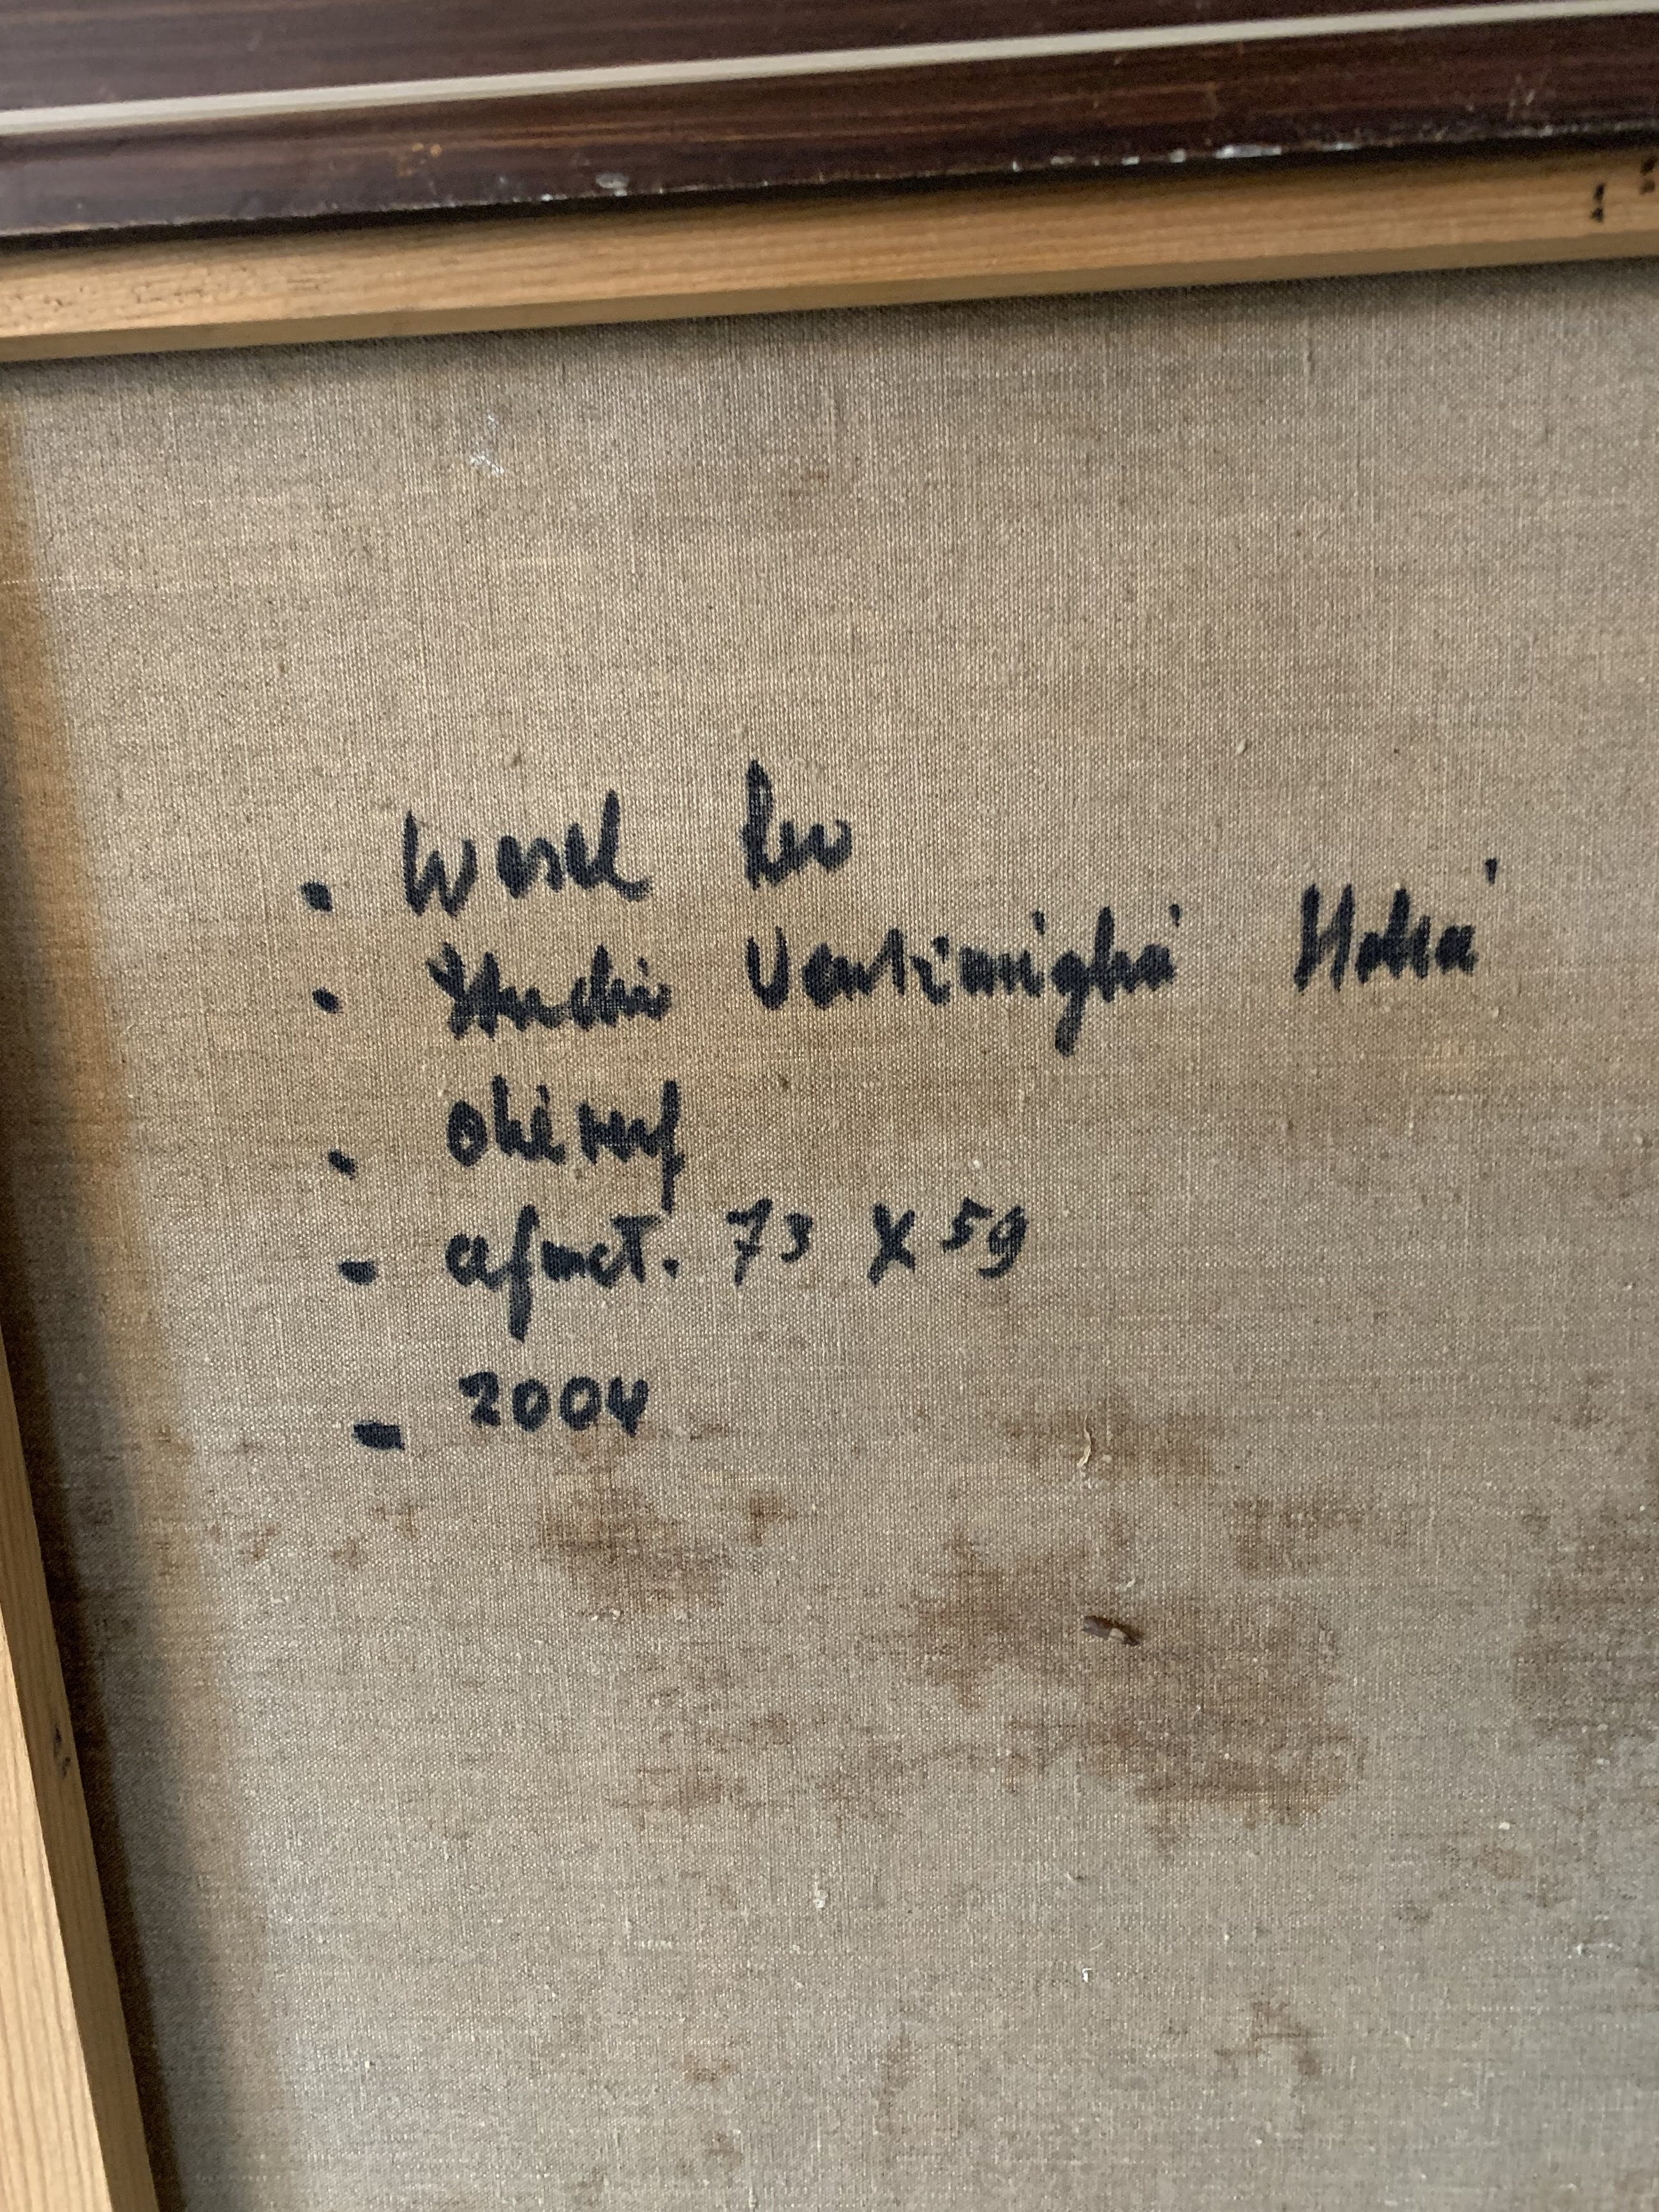 · Wesel Leo
· Studie Ventimiglia Italia
· olieverf
- afmet. 73 X 59
- 2004